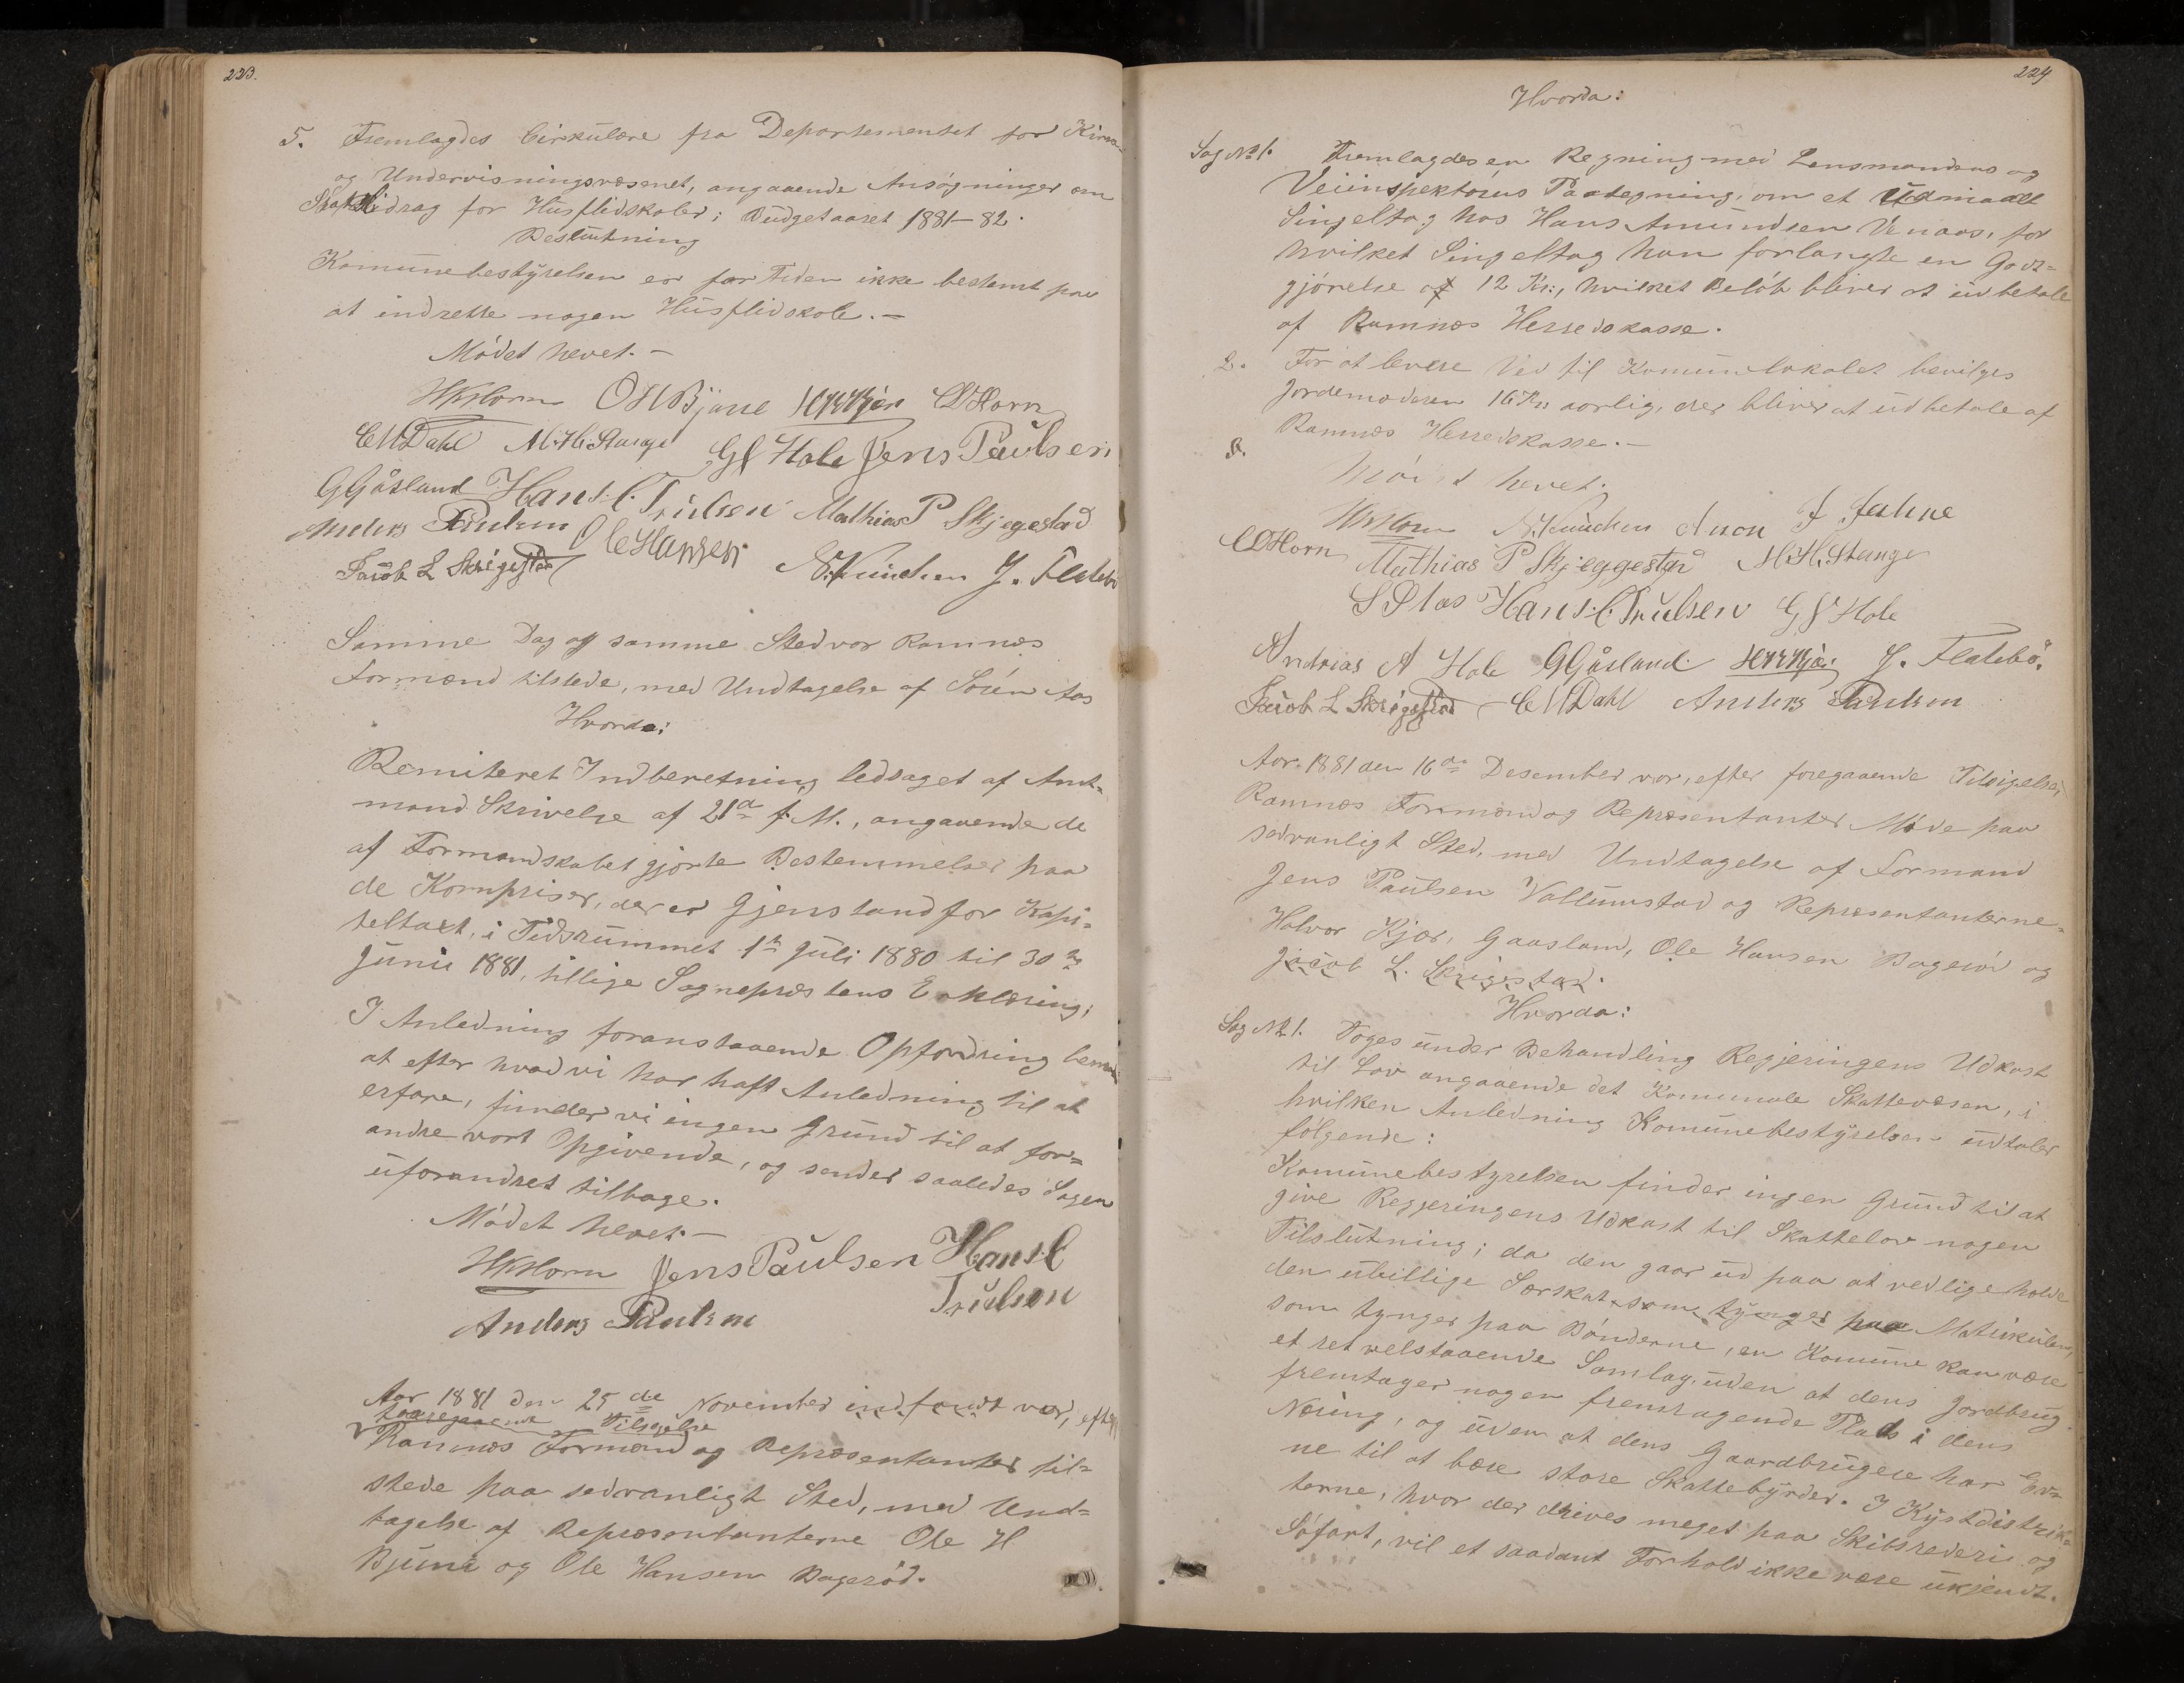 223.
5. Fremlagdes Cirkulære fra Departementet for Kirke-
og Undervisningsvæsenet, angaaende Ansøgninger om
Statsbidrag for Husflidskoler i Budgetaaret 1881-82.
Beslutning
Komunebestyrelsen er for Tiden ikke bestemt paa
at indrette nogen Husflidskole.-
Mødet hevet.-
HKHorn OHBjune HHKjær CDHorn
CUDahl M.H.Stange GJ Hole Jens Paulsen
GGåsland Hans.C.Trulsen Mathias P Skjegestad
Anders Paulsen OCHansen
Jacob L Skrigestad J. Flatebø
Samme Dag og samme Sted var Ramnæs
Formænd tilstede, med Undtagelse af Sørén Aas
Hvorda:
Remiteret Indberetning ledsaget af Amt-
mand Skrivelse af 21de f. M., angaaende de
af Formandskabet gjorte Bestemmelser paa
de Kornpriser, der er Gjenstand for Kapi-
teltaxt, i Tidsrummet 1te Juli 1880 til 30te
Junii 1881, tillige Sognepræstens Erklæring;
I Anledning foranstaaende Opfordring bemærkes
at efter hvad vi har haft Anledning til at
erfare, finder vi ingen Grund til at for-
andre vort Opgivende, og sender saaledes Sagen
uforandret tilbage.
Mødet hevet.-
HKHorn Jens Paulsen Hans.C
Trulsen
Anders Paulsen
Aar 1881 den 25de November indfandt var, efter
foregaaende Tilsigelse
Ramnæs Formænd og Repræsentanter til-
stede paa sedvanligt Sted, med Und-
tagelse af Repræsentanterne Ole H
Bjune og Ole Hansen Bagerød.
224
Hvorda:
Sag No 1. Fremlagdes en Regning med Lensmandens og
Veiinspektørens Paategning, om et Udmaalt
Singeltag hos Hans Amundsen Venaas, for
hvilket Singeltag han forlangte en Godt-
gjørelse af 12 Kr:, hvilket Beløb bliver at udbetale
af Ramnæs Herredskasse.
2. For at levere Ved til Komunelokalet bevilges
Jordemoderen 16 Kr aarlig, der bliver at udbetale af
Ramnæs Herredskasse.-
3.
Mødet hevet.
HKHorn Anon J. Jahne
CDHorn Mathias P Skjeggestad M.H.Stange
S Aas Hans.C Trulsen GJ Hole
Andrias A Hole GGåsland HHKjær J. Flatebø.
Jacob L Skrigestad CUDahl Anders Paulsen
Aar 1881 den 16de Desember var, efter foregaaende Tilsigelse,
Ramnæs Formænd og Repræsentanter Møde paa
sedvanligt Sted, med Undtagelse af Formand
Jens Paulsen Vallumstad og Repræsentanterne
Halvor Kjær, Gaasland, Ole Hansen Bagerød og
Jacob L. Skrigestad.
Hvorda:
Sag No 1. Toges under Behandling Regjeringens Udkast
til Lov angaaende det Komunale Skattevæsen, i
hvilken Anledning Komunebestyrelsen udtaler
følgende:
Komunebestyrelsen finder ingen Grund til at
give Regjeringens Udkast til Skattelov nogen
Tilslutning; da den gaar ud paa at vedligeholde
den ubillige Særskat, som tynger paa Matrikulen,
som tynger paa Bønderne, en Komune kan være
et ret velstaaende Samlag, uden at dens Jordbrug
fremtager nogen fremragende Plads i dens
Næring, og uden at dens Gaardbrugere har Ev-
ne til at bære store Skattebyrder. I Kystdistrik-
terne, hvor der drives meget paa Skibsrederi og
Søfart, vil et saadant Forhold ikke være ukjendt.